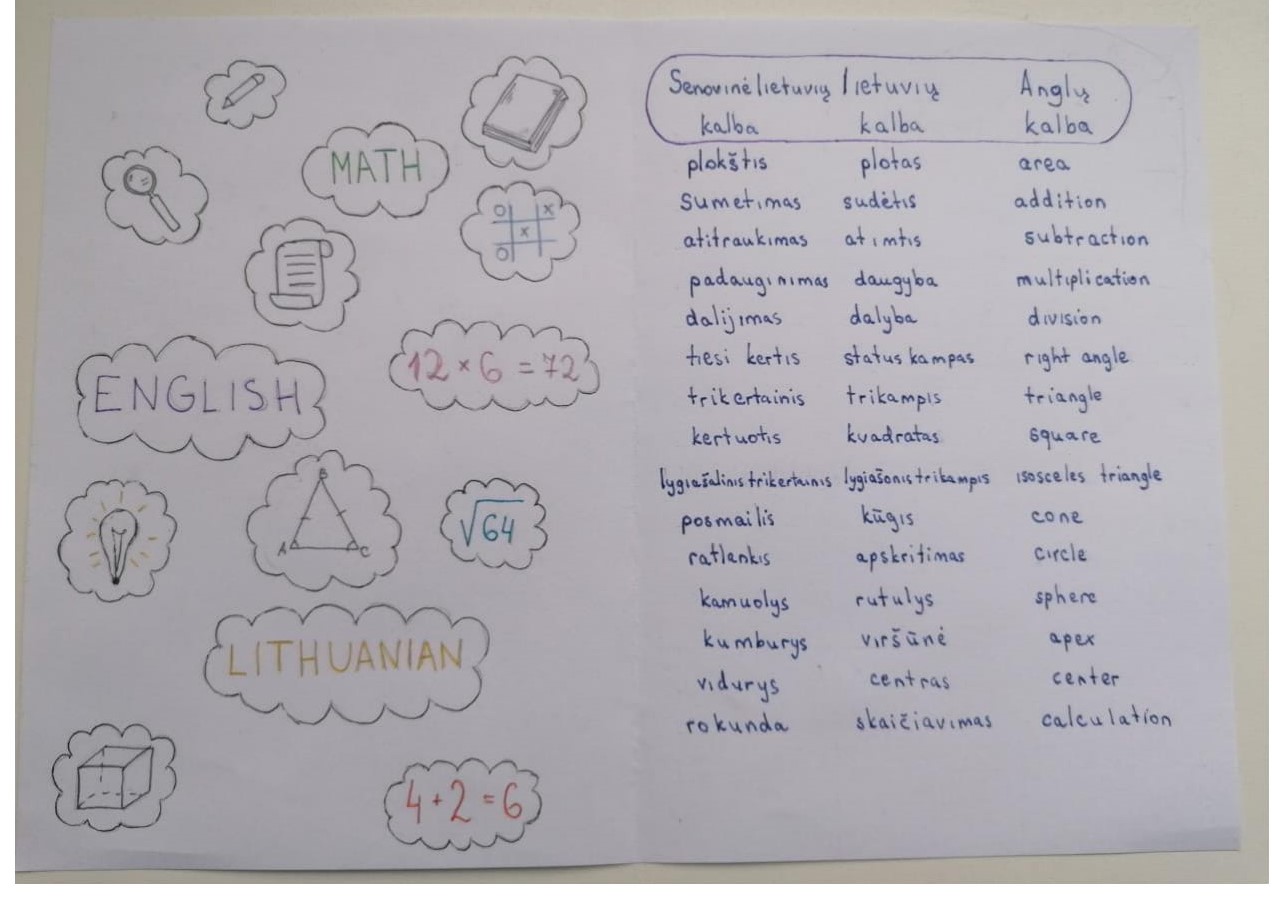 MATH
O X
X
O
ENGLISH
12 × 6 = 72
B
A C
√64
LITHUANIAN
4 + 2 = 6
Senovinė lietuvių lietuvių Anglų
kalba kalba kalba
plokštis plotas area
sumetimas sudėtis addition
atitraukimas atimtis subtraction
padauginimas daugyba multiplication
dalijimas dalyba division
tiesi kertis status kampas right angle
trikertainis trikampis triangle
kertuotis kvadratas square
lygiašalinis trikertainis lygiašonis trikampis isosceles triangle
posmailis kūgis cone
ratlankis apskritimas circle
kamuolys rutulys sphere
kumburys viršūnė apex
vidurys centras center
rokunda skaičiavimas calculation